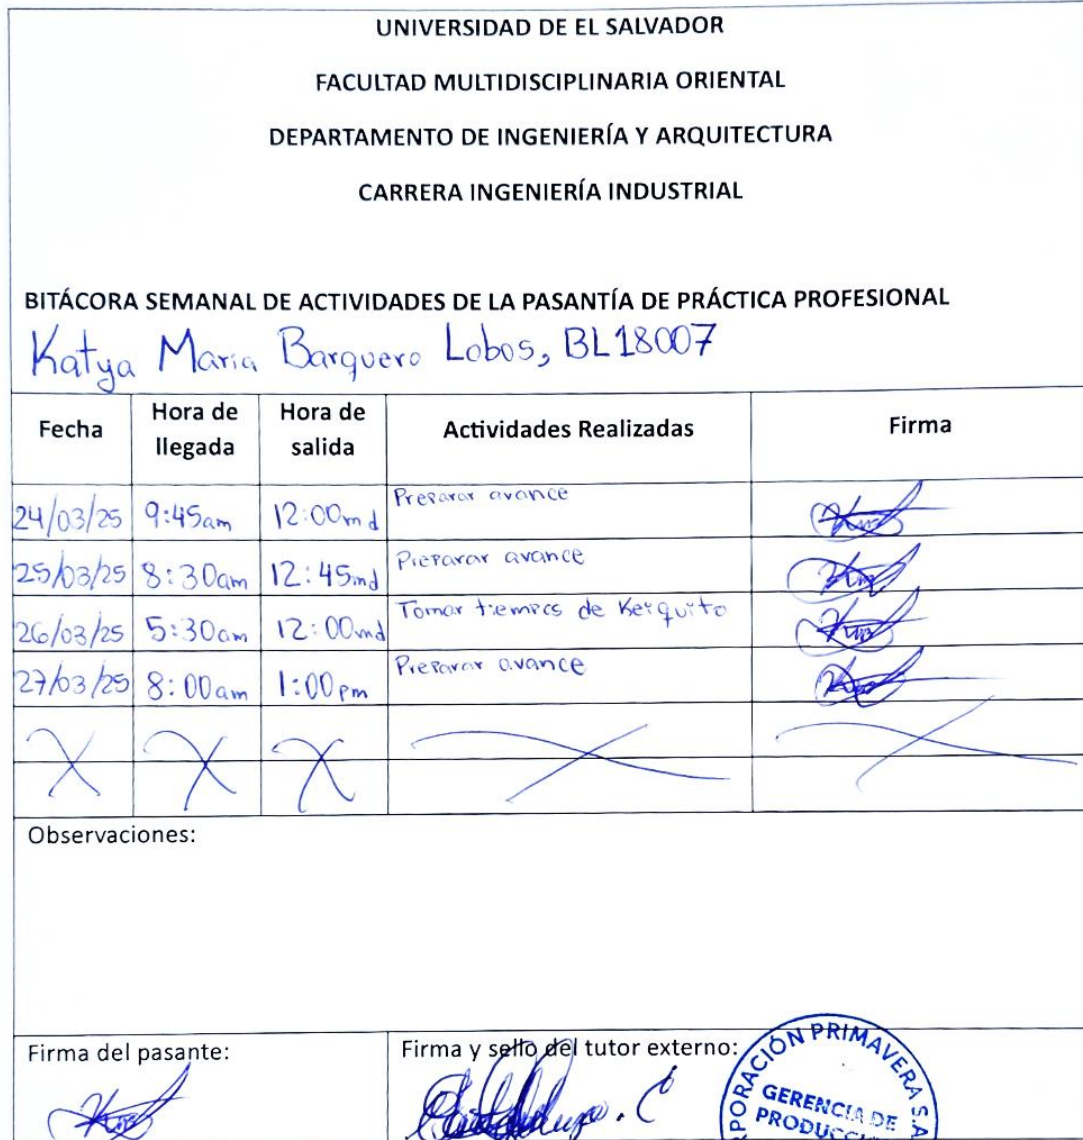 UNIVERSIDAD DE EL SALVADOR
FACULTAD MULTIDISCIPLINARIA ORIENTAL
DEPARTAMENTO DE INGENIERÍA Y ARQUITECTURA
CARRERA INGENIERÍA INDUSTRIAL
BITÁCORA SEMANAL DE ACTIVIDADES DE LA PASANTÍA DE PRÁCTICA PROFESIONAL
Katya Maria Barquero Lobos, BL18007
Fecha Hora de llegada Hora de salida Actividades Realizadas Firma
24/03/25 9:45am 12:00md Preparar avance
25/03/25 8:30am 12:45md Preparar avance
26/03/25 5:30am 12:00md Tomar tiempos de
27/03/25 8:00am 1:00pm Preparar avance
Observaciones:
Firma del pasante: Firma y sello del tutor externo:
PRIMAVERA S.A
GERENCIA DE